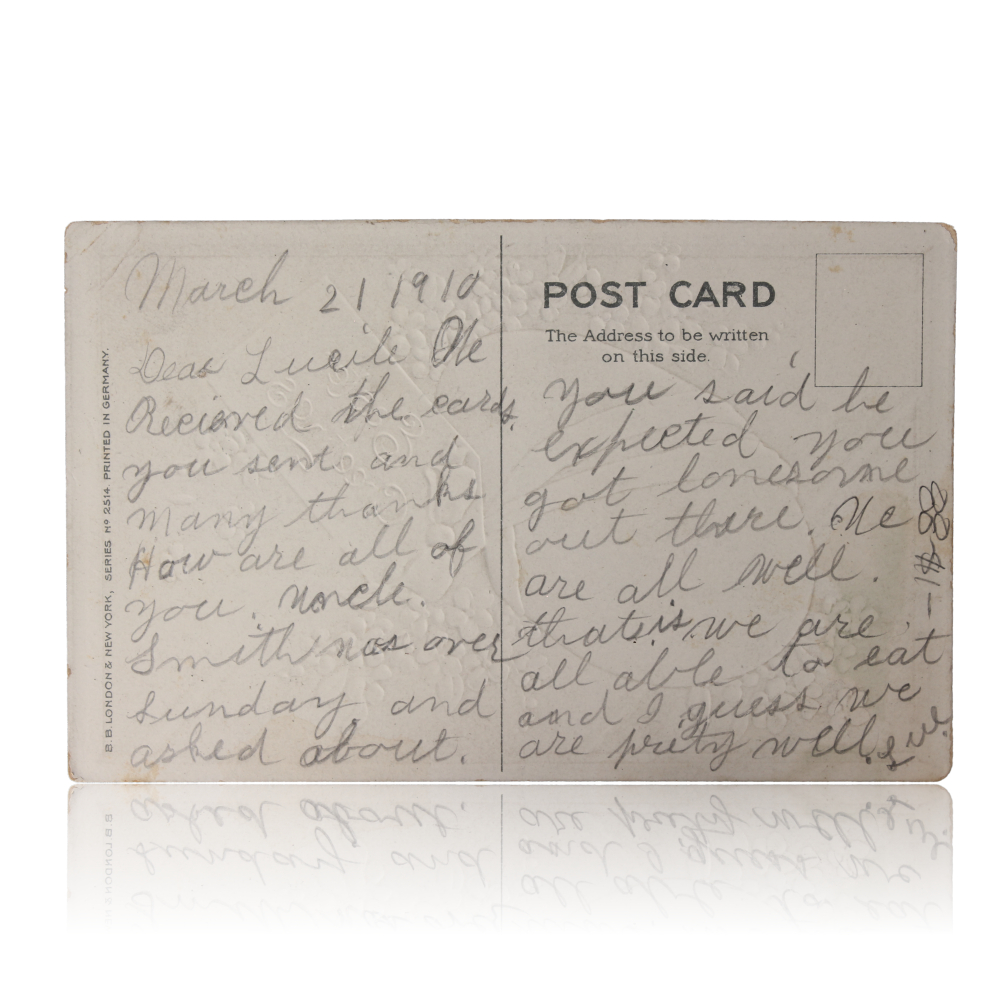 March 21 1910
Dear Lucile We
Recieved the cards.
you sent and
many thanks
How are all of
you. Uncle.
Smith was over
sunday and
asked about.
B.B. LONDON & NEW YORK, SERIES Nº 2514 PRINTED IN GERMANY.
POST CARD
The Address to be written
on this side.
you said he
expected you
got lonesome
out there. We
are all well.
that is we are
all able to eat
and I guess we
are prety well.